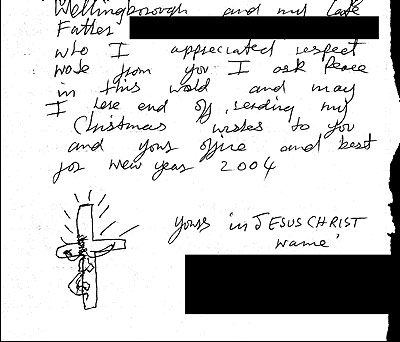 Wellingborough and my late
Father
who I appreciated respect
wote from you I ask Peace
in this wold and may
I here end off, sending my
Christmas wishes to you
and yours office and best
for New year 2004
yours in JESUS CHRIST
name